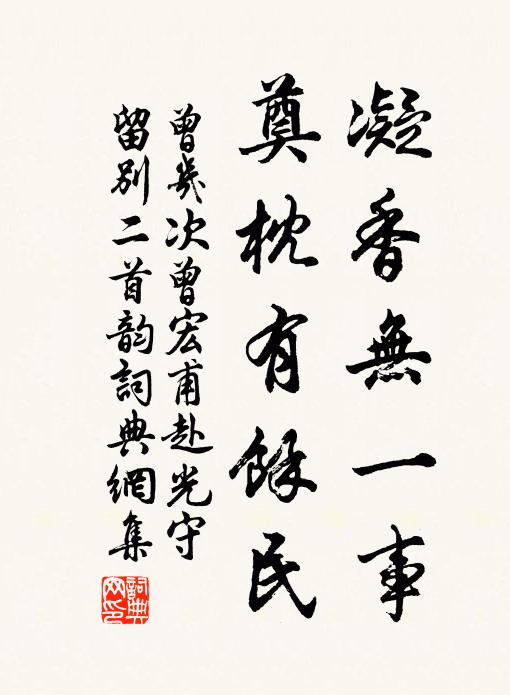 凝香無一事
奠枕有餘民
曾幾次曾宏甫赴光守
留別二首韵詞典網集
詞典
网印